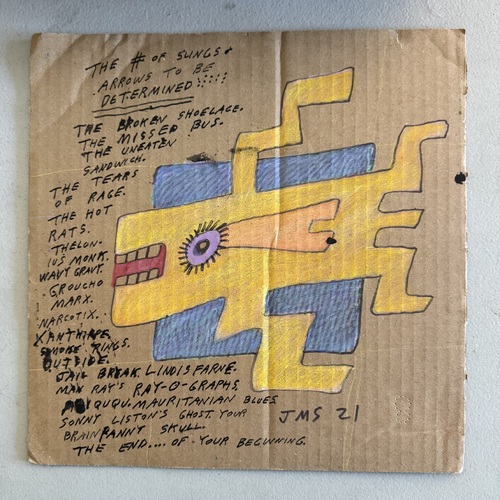 THE # OF SLINGS &
ARROWS TO BE
DETERMINED
THE BROKEN SHOELACE.
THE MISSED BUS.
THE UNEATEN
SANDWICH.
THE TEARS
OF RAGE.
THE HOT
RATS.
THELON-
IUS MONK.
WAVY GRAVY.
GROUCHO
MARX.
NARCOTIX.
XANTHIPPE.
SMOKE RINGS.
OUTSIDE.
JAIL BREAK. LINDISFARNE.
MAN RAY'S RAY-O-GRAPHS.
MAURITANIAN BLUES
SONNY LISTON'S GHOST. YOUR
BRAINPANNY SKULL.
THE END.... OF YOUR BEGINNING.
JMS 21